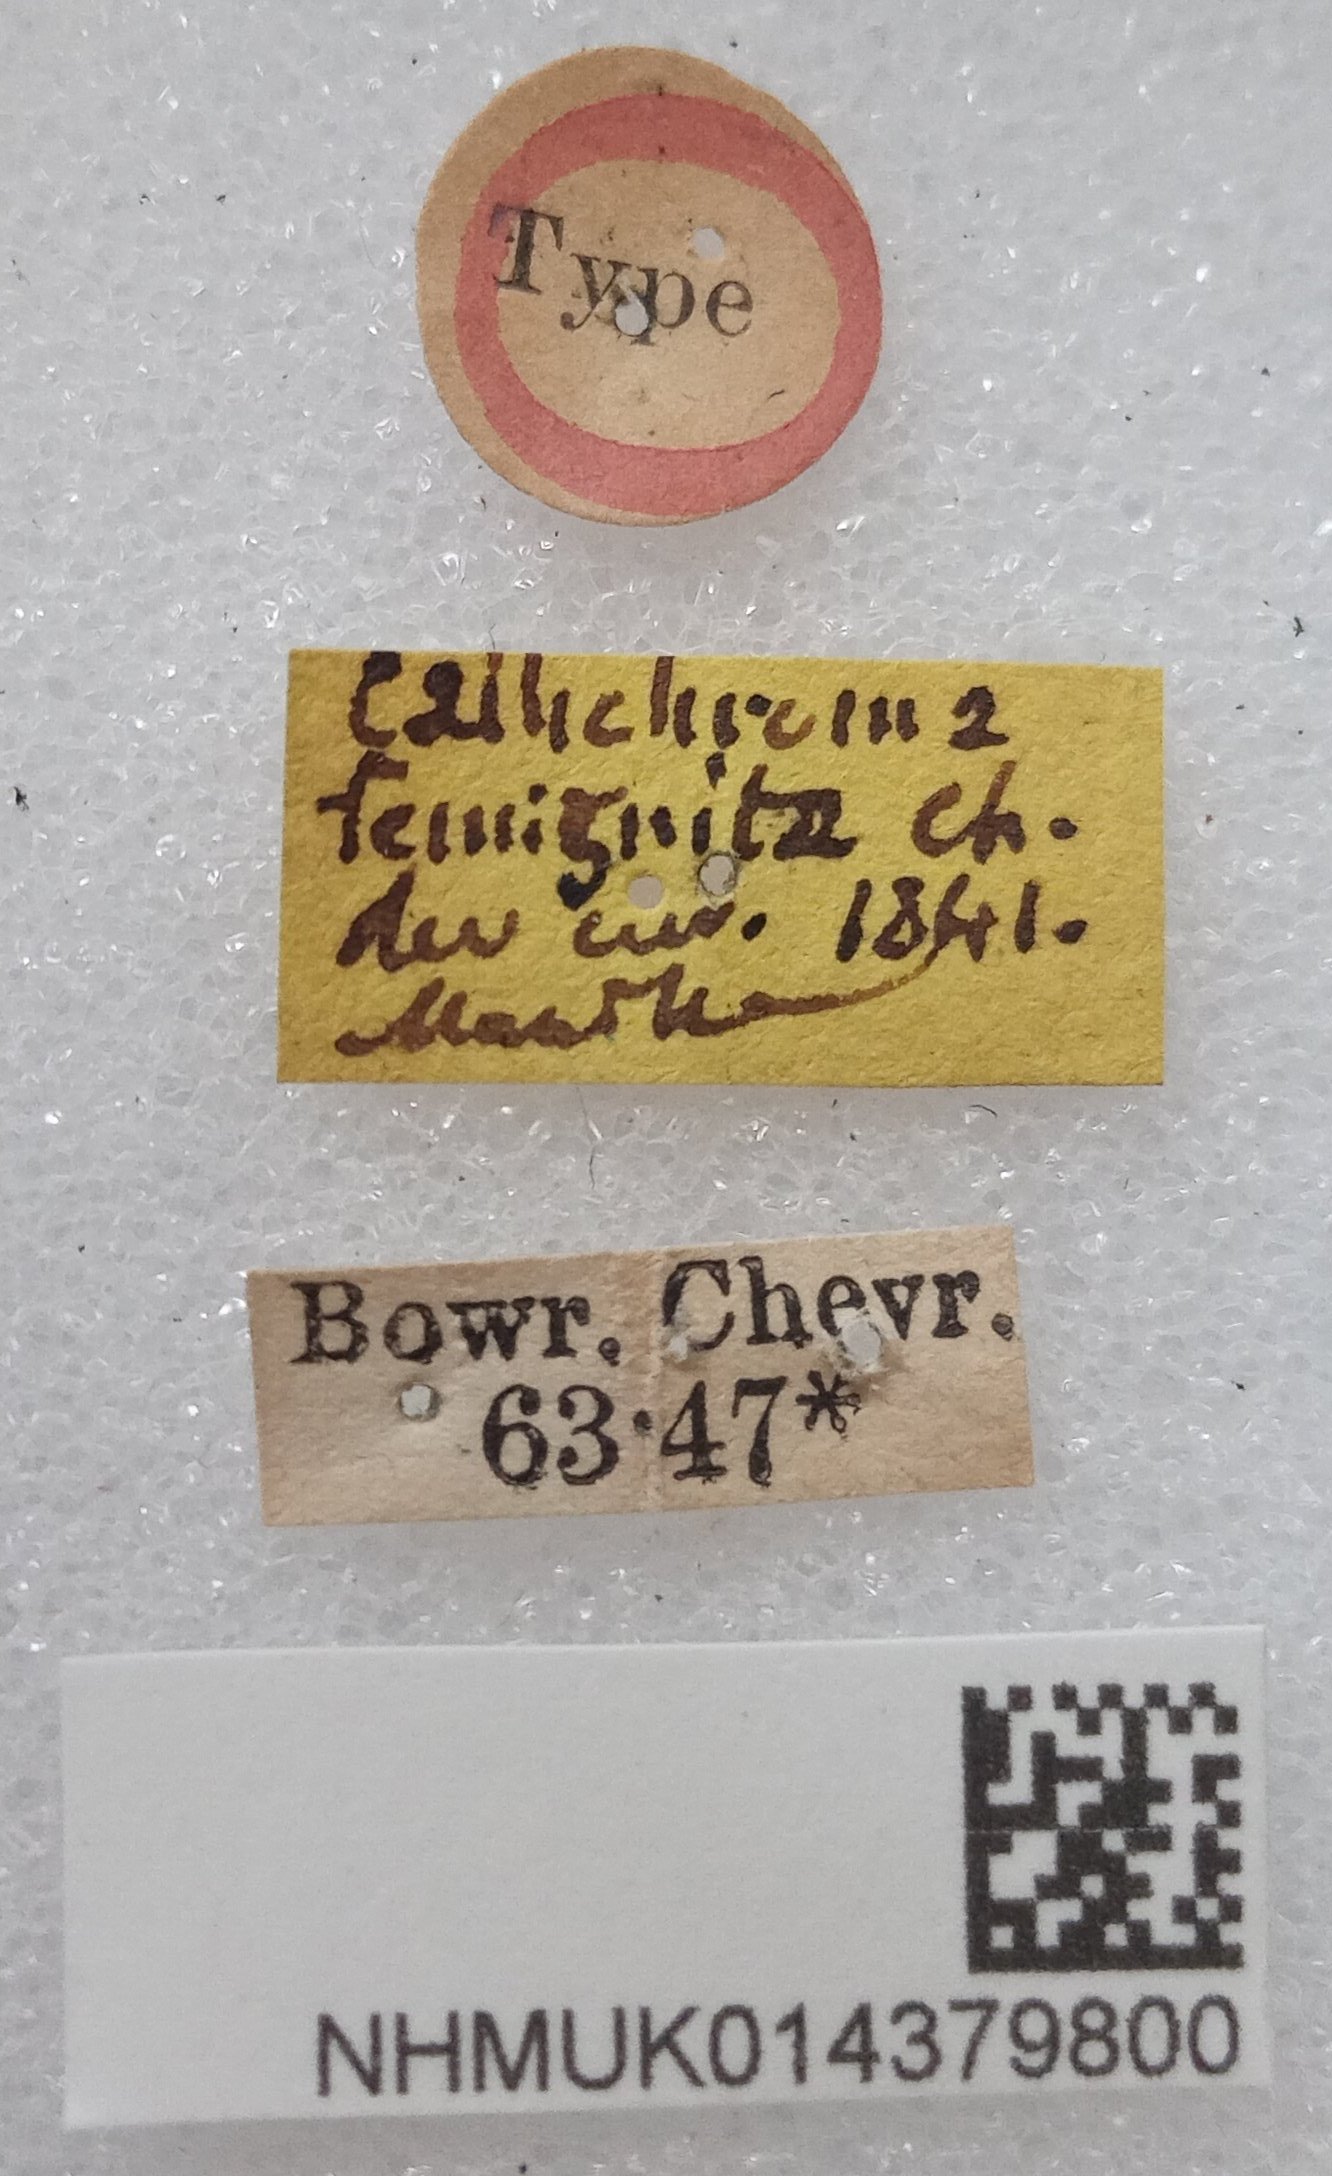 Type
Callichroma
semignita Ch.
rev cuv. 1841.
Bowr. Chevr.
63·47*
NHMUK014379800